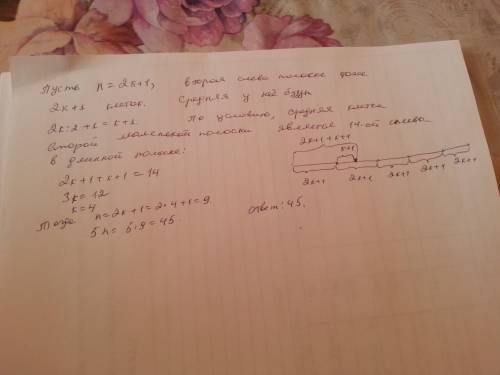 Пусть n = 2k+1, вторая слева полоска тоже
2k+1 клеток. Средняя у неё будет
2k:2+1 = k+1. По условию, средняя клетка
второй полоски является 14-ой слева
в длинной полоске:
2k+1+k+1
k+1
2k+1 2k+1 2k+1 2k+1 2k+1
2k+1+k+1=14
3k=12
k=4
Тогда n=2k+1=2·4+1=9
5n=5·9=45.
Ответ: 45.